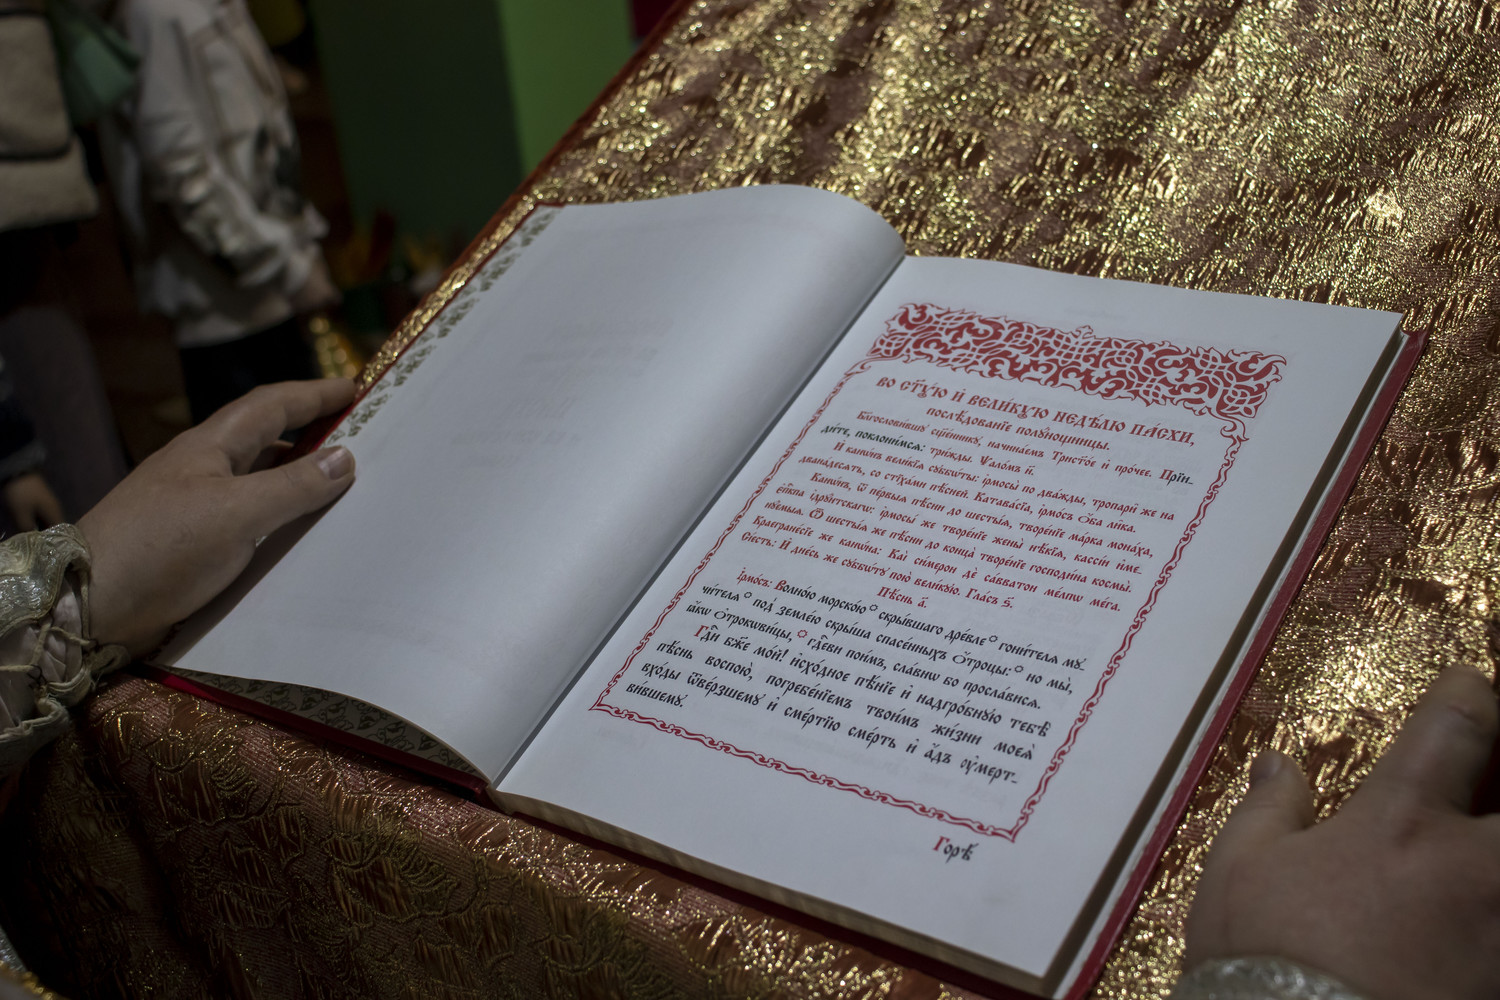 ВО СТ҃ꙋ́ю И҆ ВЕЛИ́Кꙋю НЕДѢ́ЛЮ ПА́СХИ,
послѣ́дованїе полꙋ́нощницы.
Бл҃гослови́вшꙋ сщ҃е́нникꙋ, начина́емъ Трист҃о́е и҆ про́чее. Прїи-
ди́те, поклони́мсѧ: три́жды. Ѱало́мъ н҃.
И҆ канѡ́нъ вели́кїѧ сꙋббѡ́ты: і҆рмосы̀ по два́жды, тропари́ же на
двана́десѧть, со стїха́ми пѣ́сней. Катава́сїа, і҆рмо́съ ѻ҆́ба ли́ка.
Канѡ́нъ, ѿ пе́рвыѧ пѣ́сни до шесты́ѧ, творе́нїе ма́рка мона́ха,
є҆пі́кпа і҆дрꙋ́нтскагѡ: і҆рмосы́ же творе́нїе жены̀ нѣ́кїѧ, кассі́и и҆ме-
нꙋ́емыѧ. Ѿ шесты́ѧ же пѣ́сни до конца̀ творе́нїе господи́на космы̀.
Краегране́сїе же канѡ́на: Каѝ си́мерон дѐ са́вватон ме́лпѡ ме́га.
Сїе́сть: И҆ дне́сь же сꙋббѡ́тꙋ пою̀ вели́кꙋю. Гла́съ ѕ҃.
Пѣ́снь а҃.
І҆рмо́съ: Волно́ю морско́ю * скры́вшаго дре́вле * гони́телѧ мꙋ-
чи́телѧ * под̾ земле́ю скры́ша спасе́нныхъ ѻ҆́троцы: * но мы̀,
ꙗ҆́кѡ ѻ҆трокови́цы, * гдⷭ҇еви пои́мъ, сла́внѡ бо просла́висѧ.
Гдⷭ҇и бж҃е мо́й! и҆схо́дное пѣ́нїе и҆ надгро́бнꙋю тебѣ̀
пѣ́снь воспою̀, погребе́нїемъ твои́мъ жи́зни моеѧ̀
вхо́ды ѿве́рзшемꙋ и҆ сме́ртїю сме́рть и҆ а҆́дъ оу҆мерт-
ви́вшемꙋ.
Горѣ̀